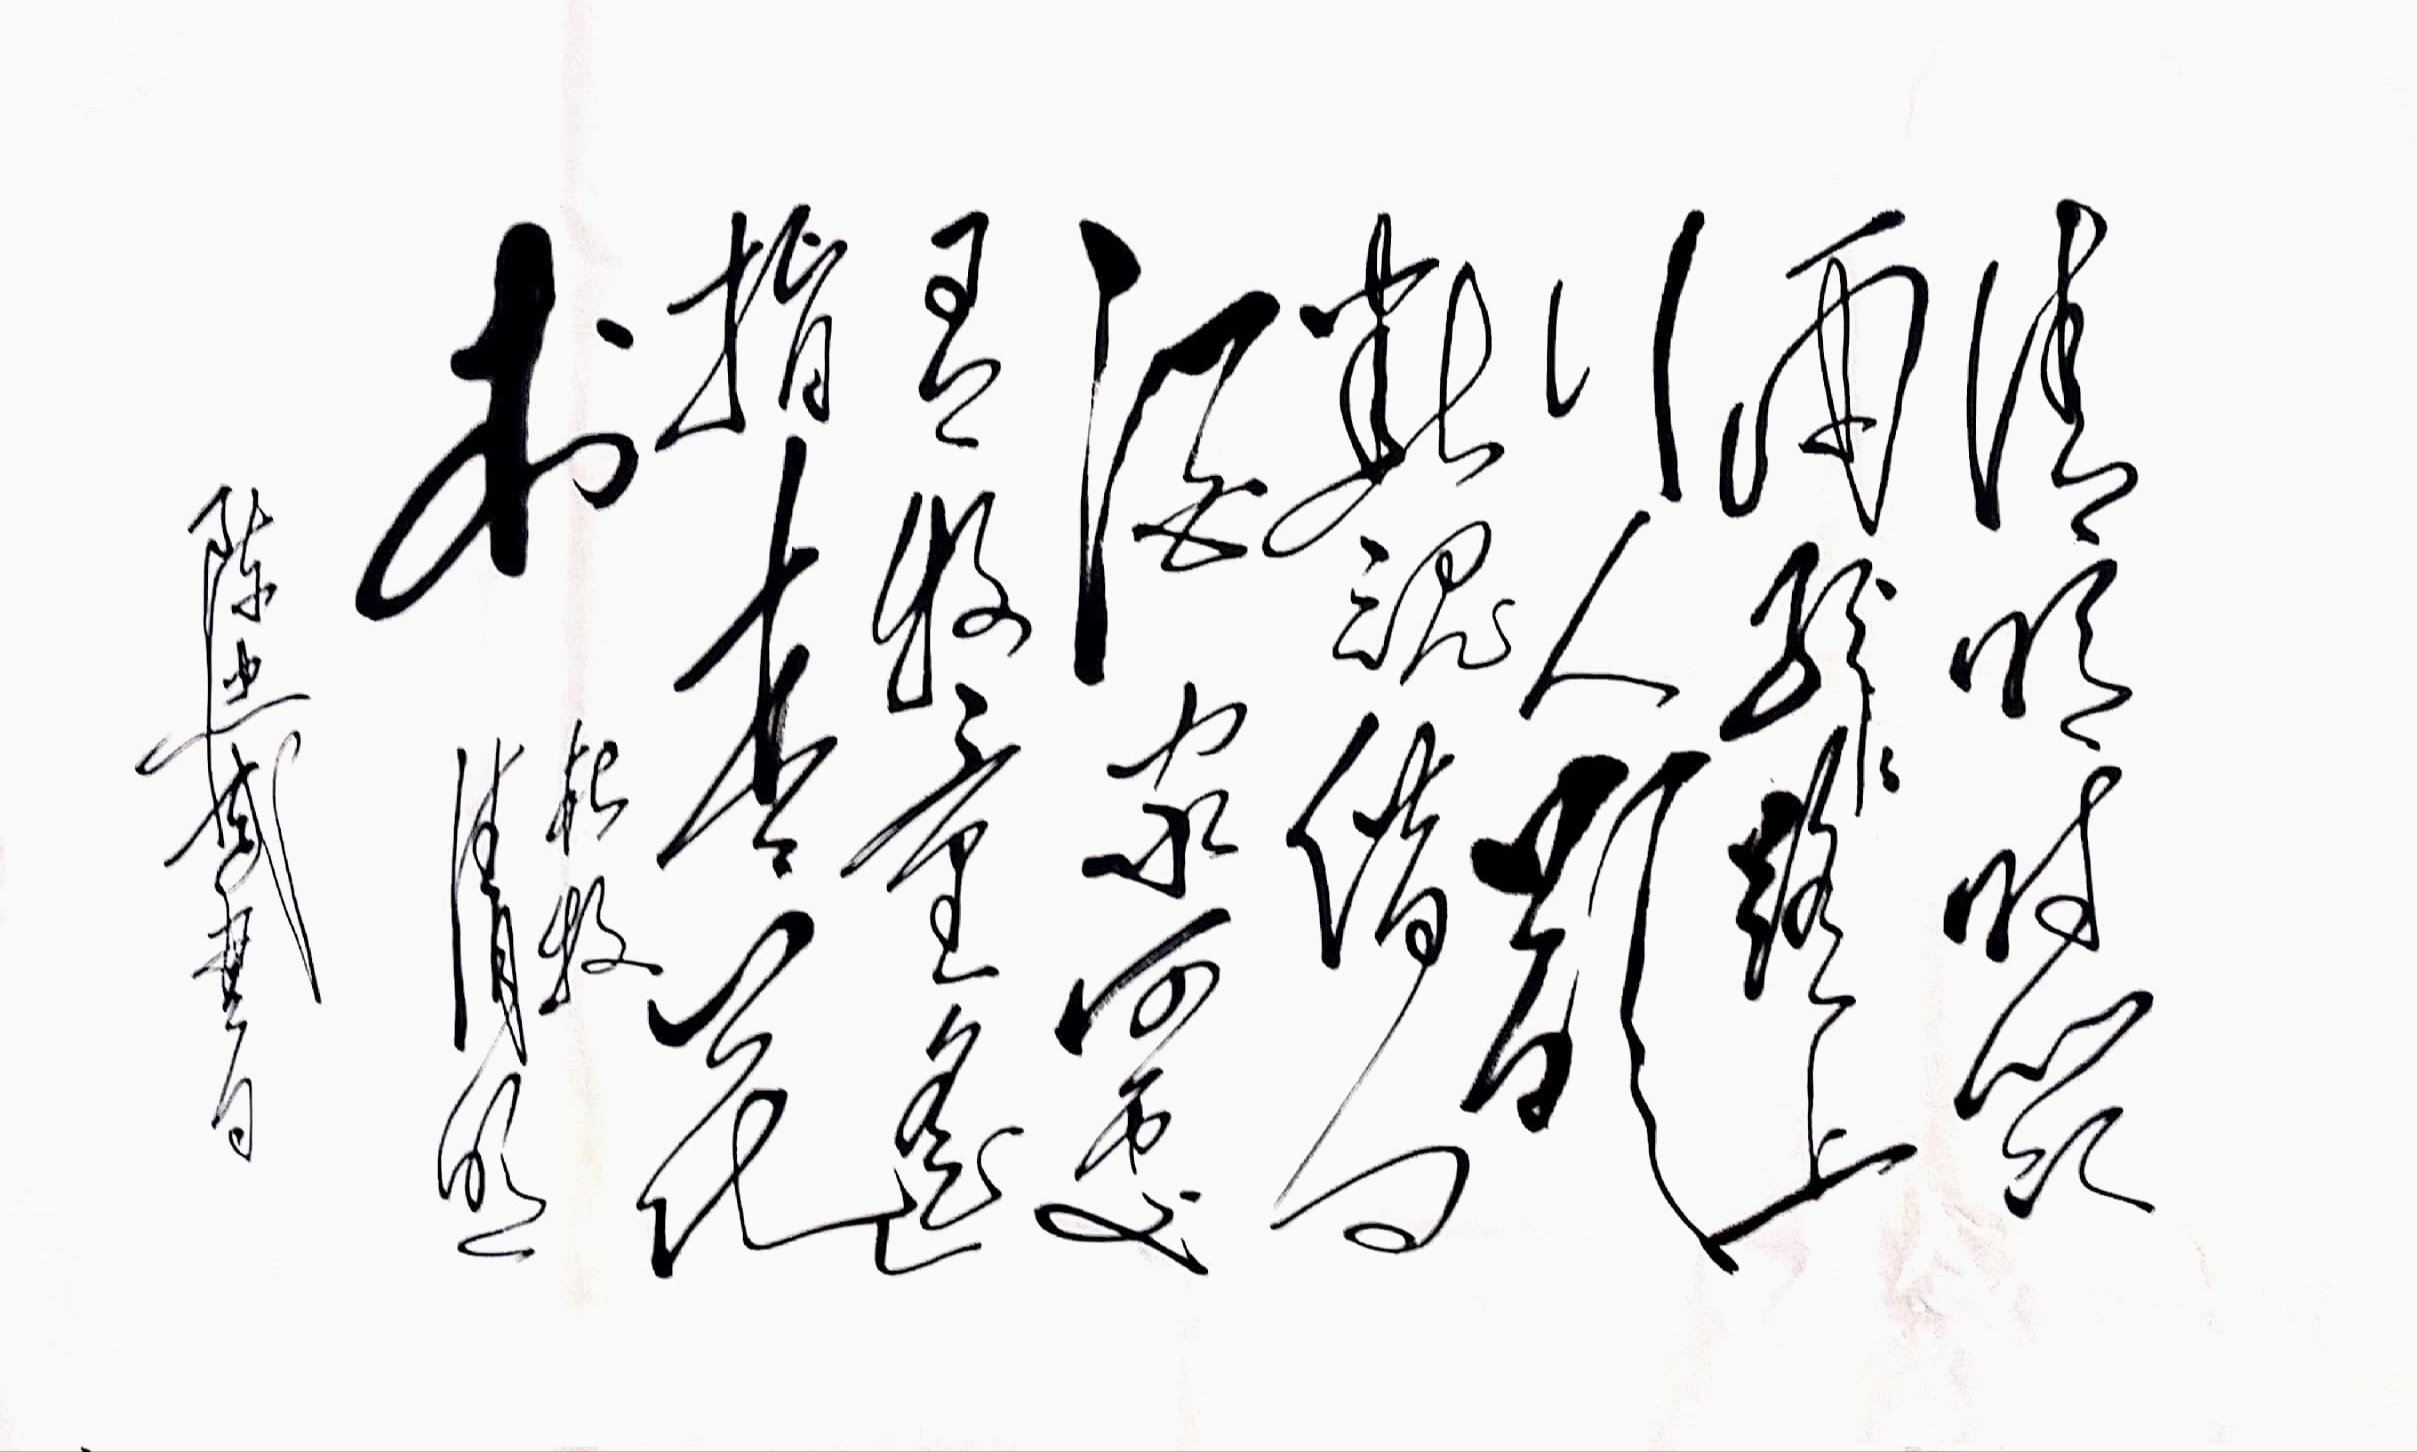 清明时节
雨纷纷路上
行人欲
断魂借问
酒家何处
有牧童遥
指杏花
村
杜牧
清明
陈忠 书